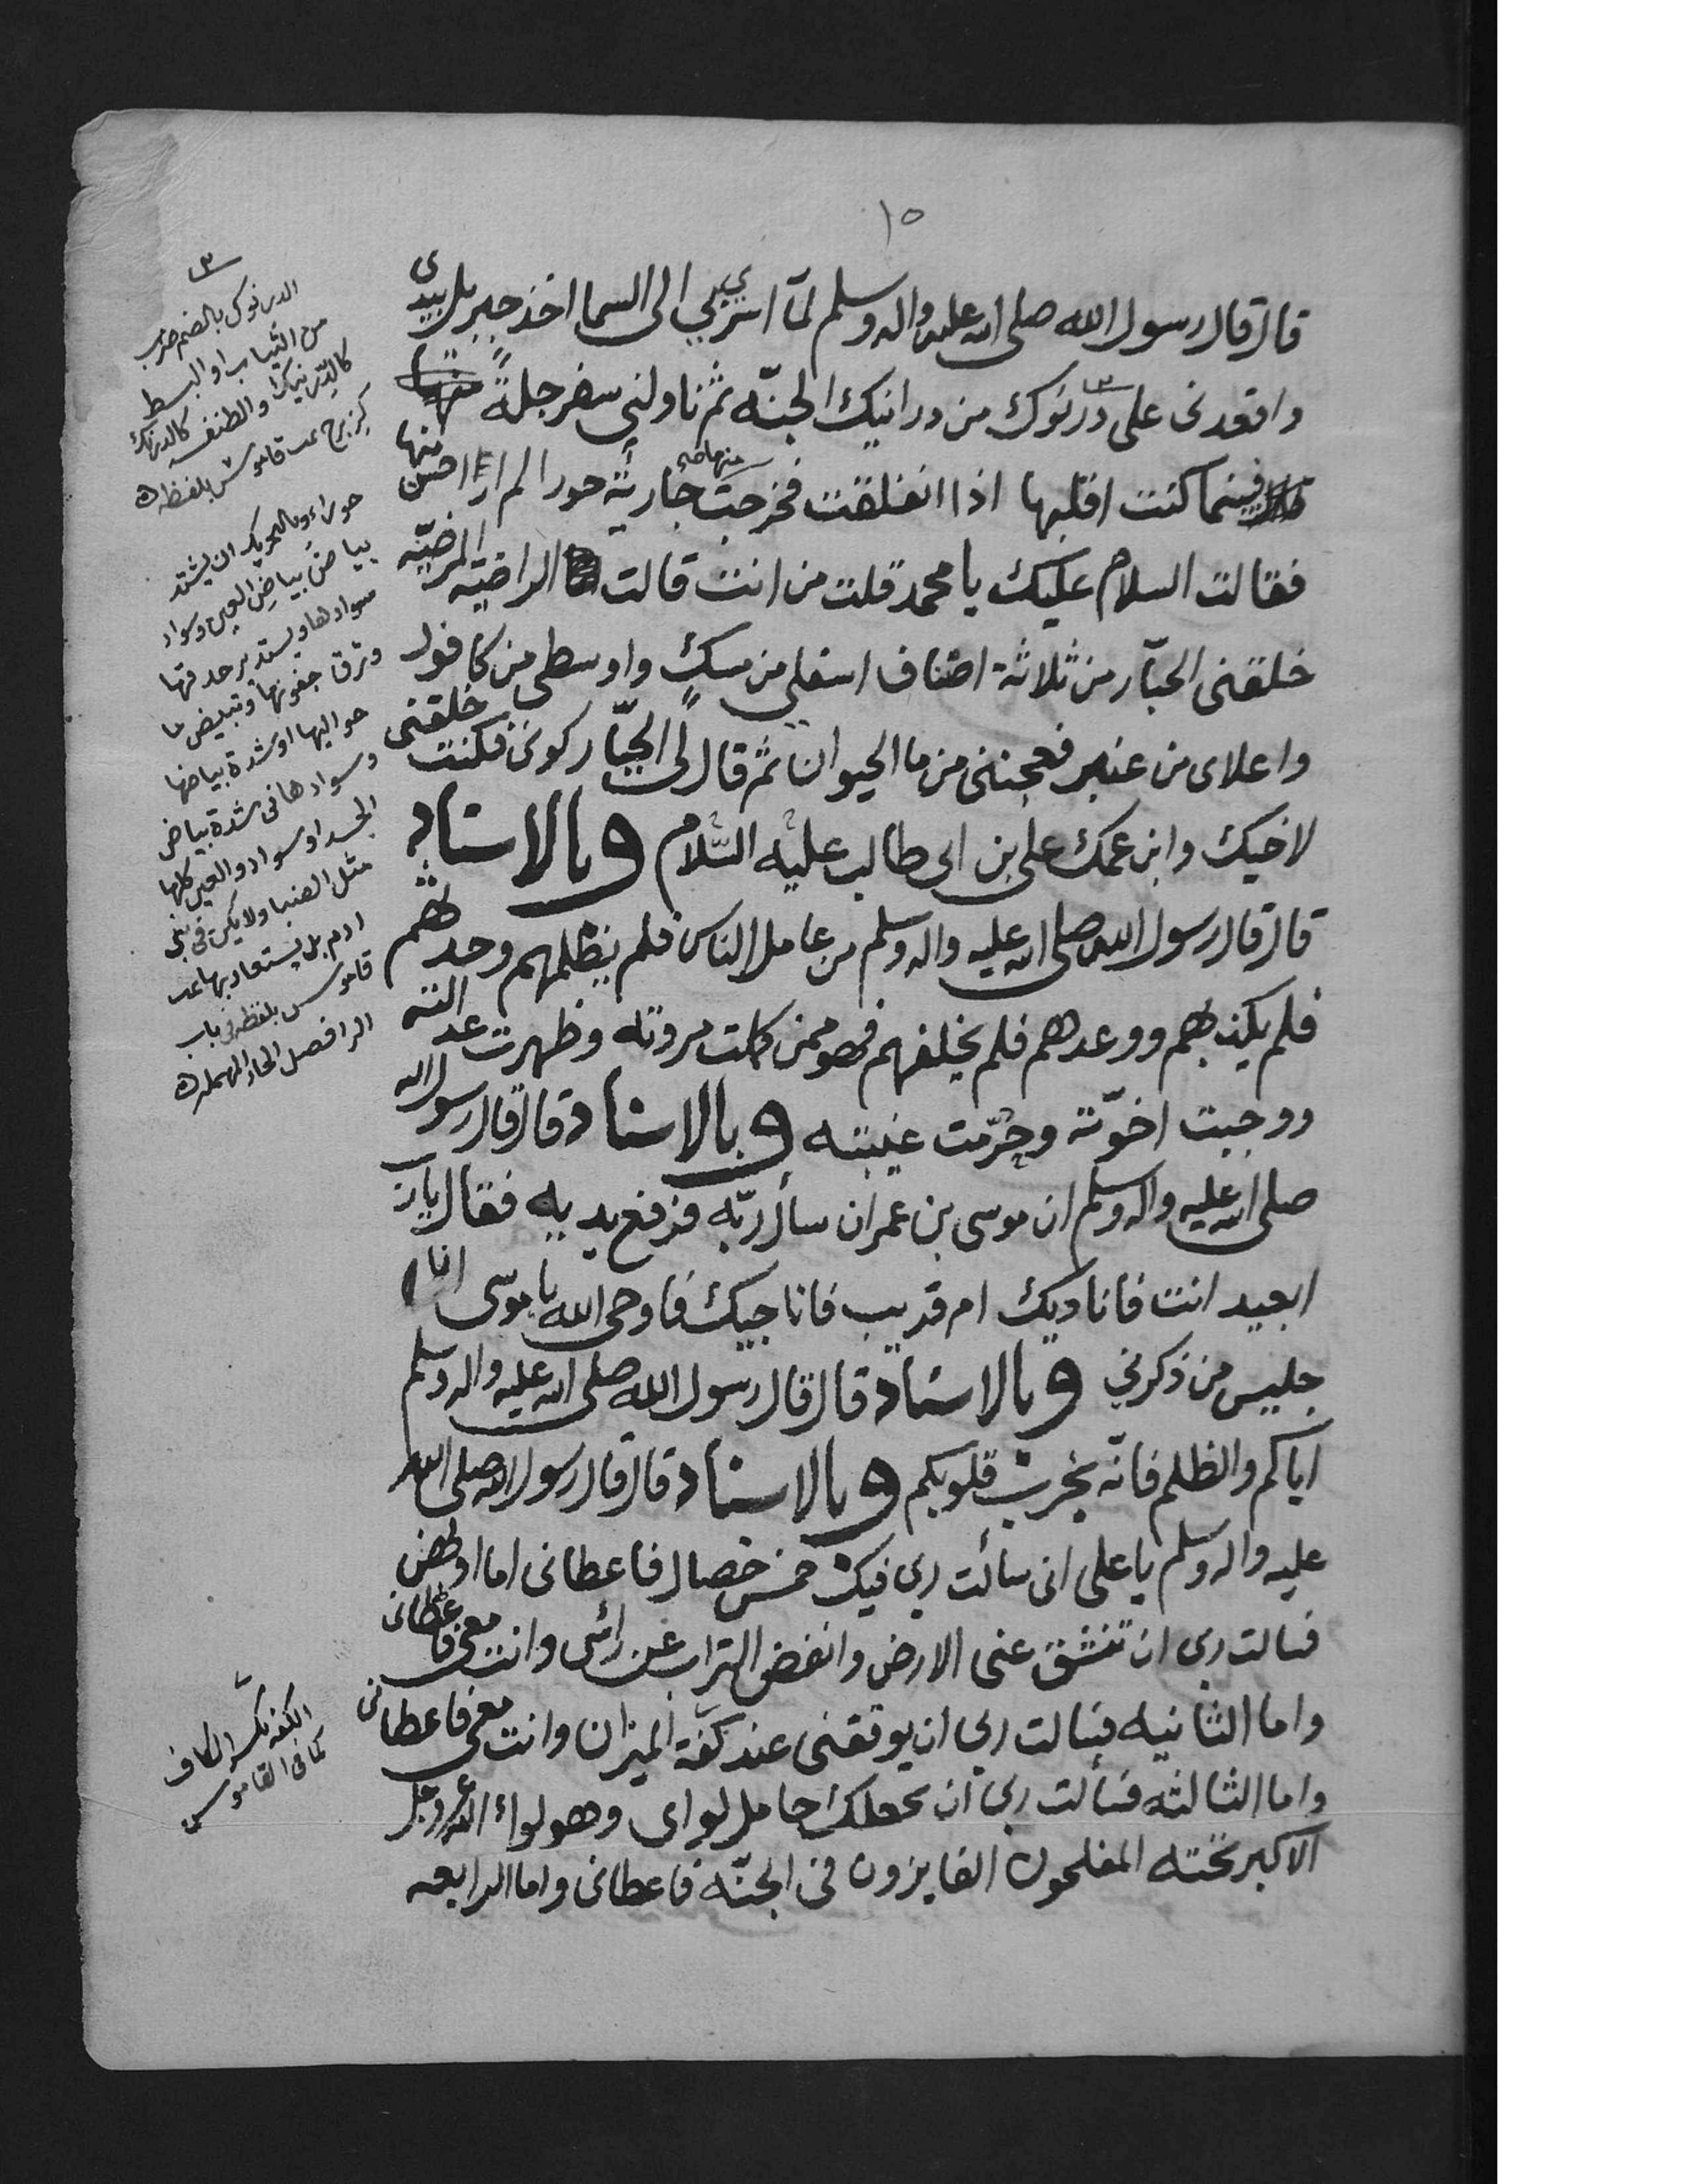 ١٥
قال قال رسول الله صلى الله عليه واله وسلم لما اسري بي الى السما اخذ جبريل بيدي
واقعدنى على درنوك من درانيك الجنه ثم ناولني سفرجلة
فبينما كنت اقلبها اذا انفلقت فخرجت منها جارية حورا لم ار احسن منها
فقالت السلام عليك يا محمد قلت من انت قالت الراضيه المرضيّه
خلقنى الجبّار من ثلاثة اصناف اسفلي من مسك واوسطي من كافور
واعلاى من عنبر فعجننى من ما الحيوان ثم قال لي الجبّار كونى فكنت خلقنى
لاخيك وابن عمك على بن ابى طالب عليه السّلام وبالاسناد
قال قال رسول الله صلى الله عليه واله وسلم من عامل الناس فلم يظلمهم وحدثهم
فلم يكذبهم ووعدهم فلم يخلفهم فهو ممن كملت مروته وظهرت عدالته
ووجبت اخوّته وحرّمت غيبته وبالاسناد قال قال رسول الله
صلى الله عليه واله وسلم ان موسى بن عمران سأل ربّه فرفع يديه فقال يارب
ابعيد انت فاناديك ام قريب فاناجيك فاوحى الله يا موسى انا
جليس من ذكرني وبالاسناد قال قال رسول الله صلى الله عليه واله وسلم
اياكم والظلم فانّه يخرب قلوبكم وبالاسناد قال قال رسول الله صلى الله
عليه واله وسلم يا على انى سألت ربي فيك خمس خصال فاعطانى اما اولهن
فسالت ربى ان تنشق عنى الارض وانفض التراب عن رائسى وانت معى فاعطانى
واما الثانيه فسالت ربي ان يوقفنى عند كفّة الميزان وانت معى فاعطانى
واما الثالثه فسألت ربي ان يجعلك حامل لواى وهو لواء الله عز وجل
الاكبر تحته المفلحون الفايزون فى الجنّه فاعطانى واما الرابعه
الدرنوك بالضم ضرب
من الثياب او البسط
كالدرنيك والطنفسه كالدرنك
كزبرج تمت قاموس بلفظه
حوراء وبالتحريك ان يشتد
بياض بياض العين وسواد
سوادها ويستدير حدقتها
وترق جفونها وتبيض ما
حواليها او شدة بياضها
وسوادها فى شدة بياض
الجسد او سواد العين كلها
مثل الضبا ولا يكون فى بني
ادم بل يستعار بها تمت
قاموس بلفظه فى باب
الرا فصل الحاء المهمله
الكفه بكسر الكاف
كما فى القاموس